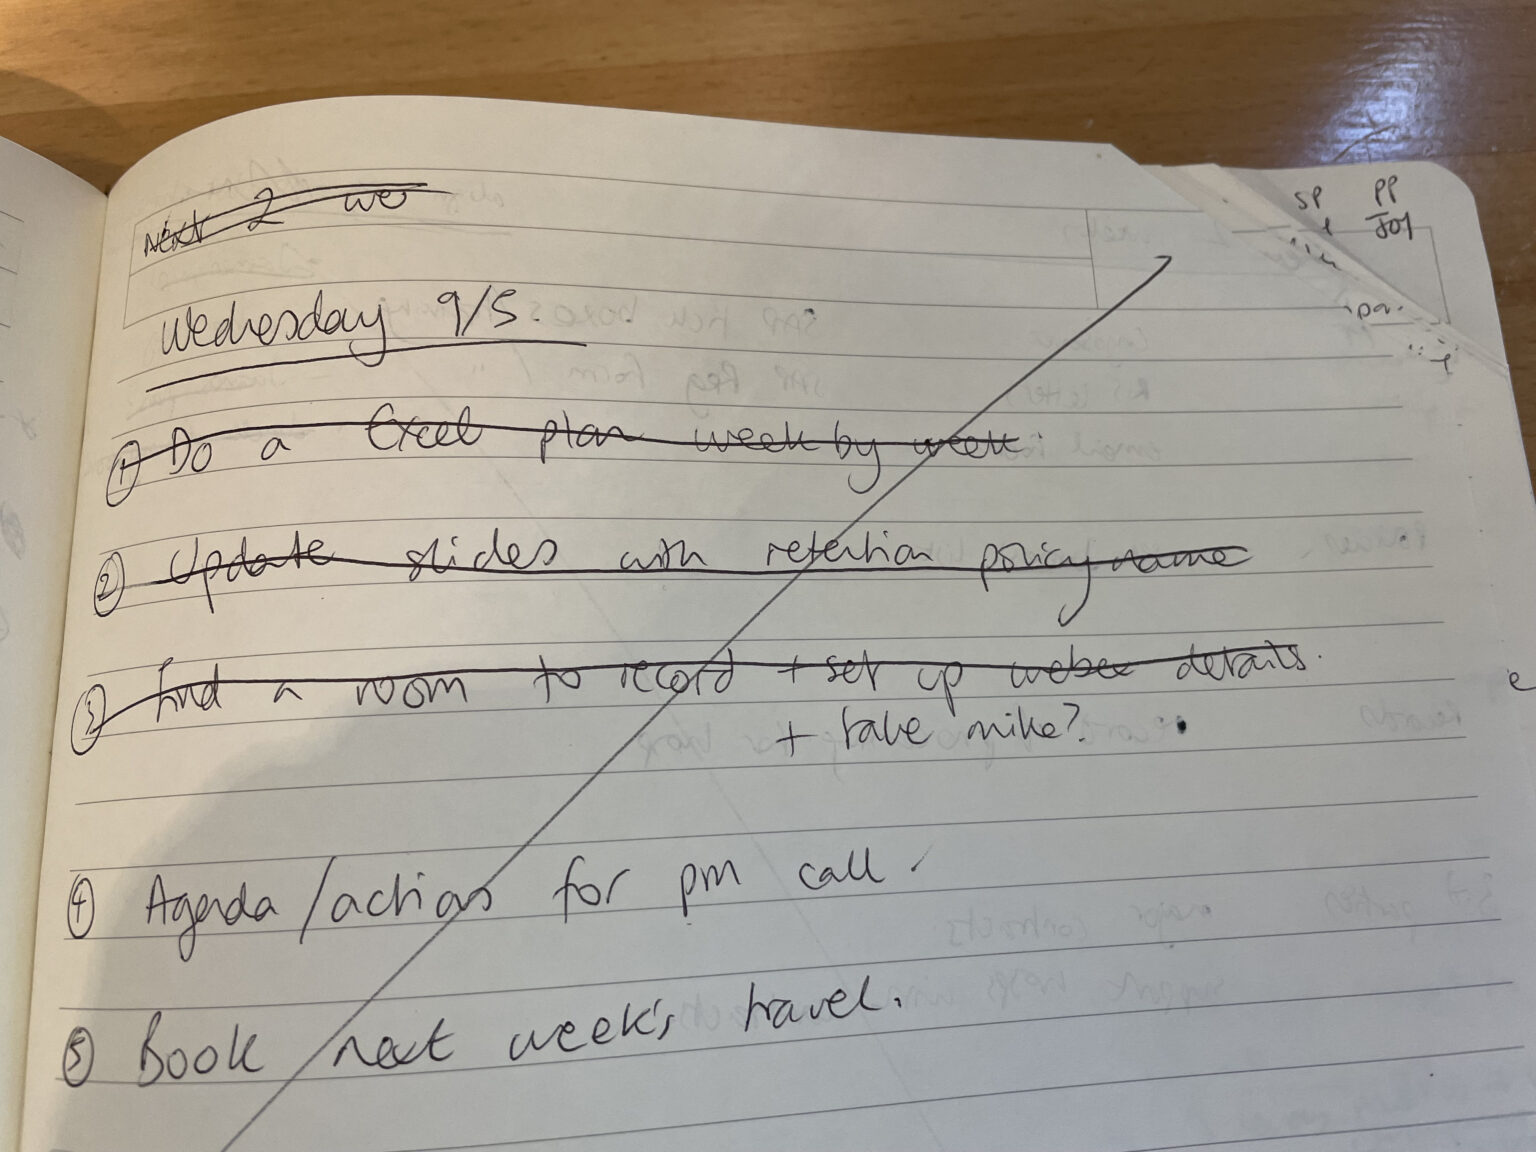 Next 2 we
SP PP
JOY
Wednesday 9/5.
① Do a Excel plan week by week
② Update slides with retention policy name
③ find a room to record + set up webex details.
+ take mike?
④ Agenda/actions for pm call.
⑤ Book next week's travel.